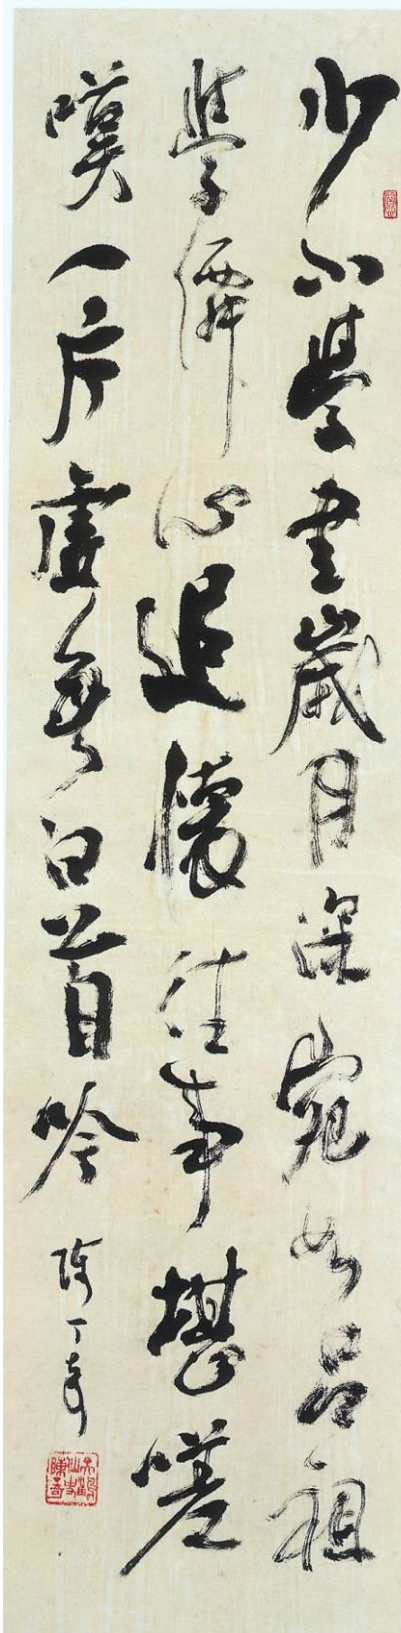 少小學書歲月深宛如呂祖
學僊心追懷往事堪嗟
嘆一片虛無白首吟
陳丁奇